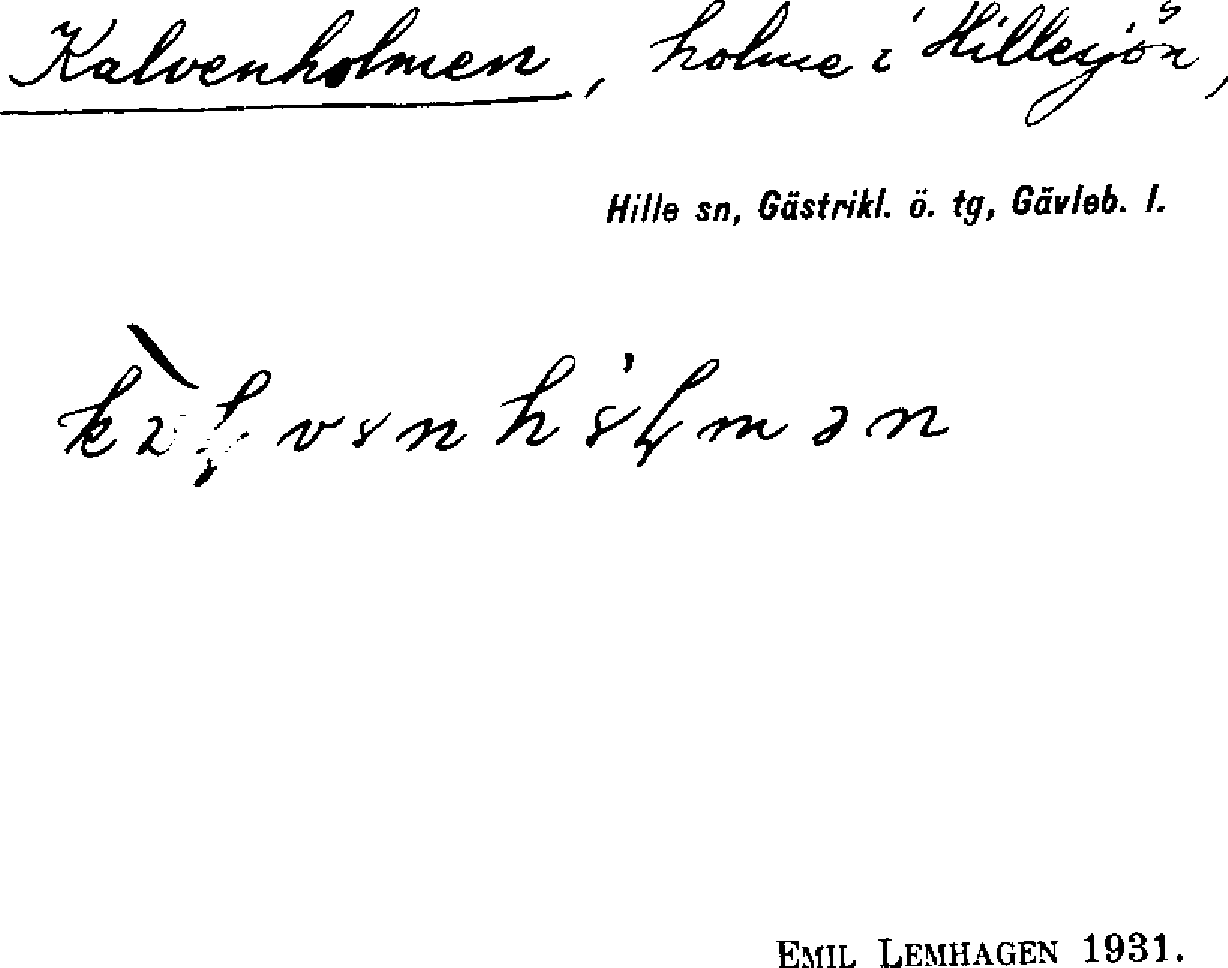 Kalvenholmen, holme i Hillesjön,
Hille sn, Gästrikl. ö. tg, Gävleb. l.
EMIL LEMHAGEN 1931.